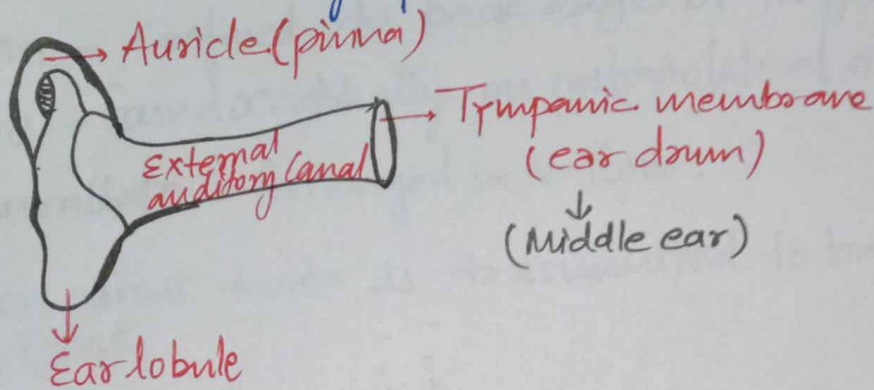 Auricle (pinna)
External
auditory Canal
Tympanic membrane
(ear drum)
(Middle ear)
Ear lobule